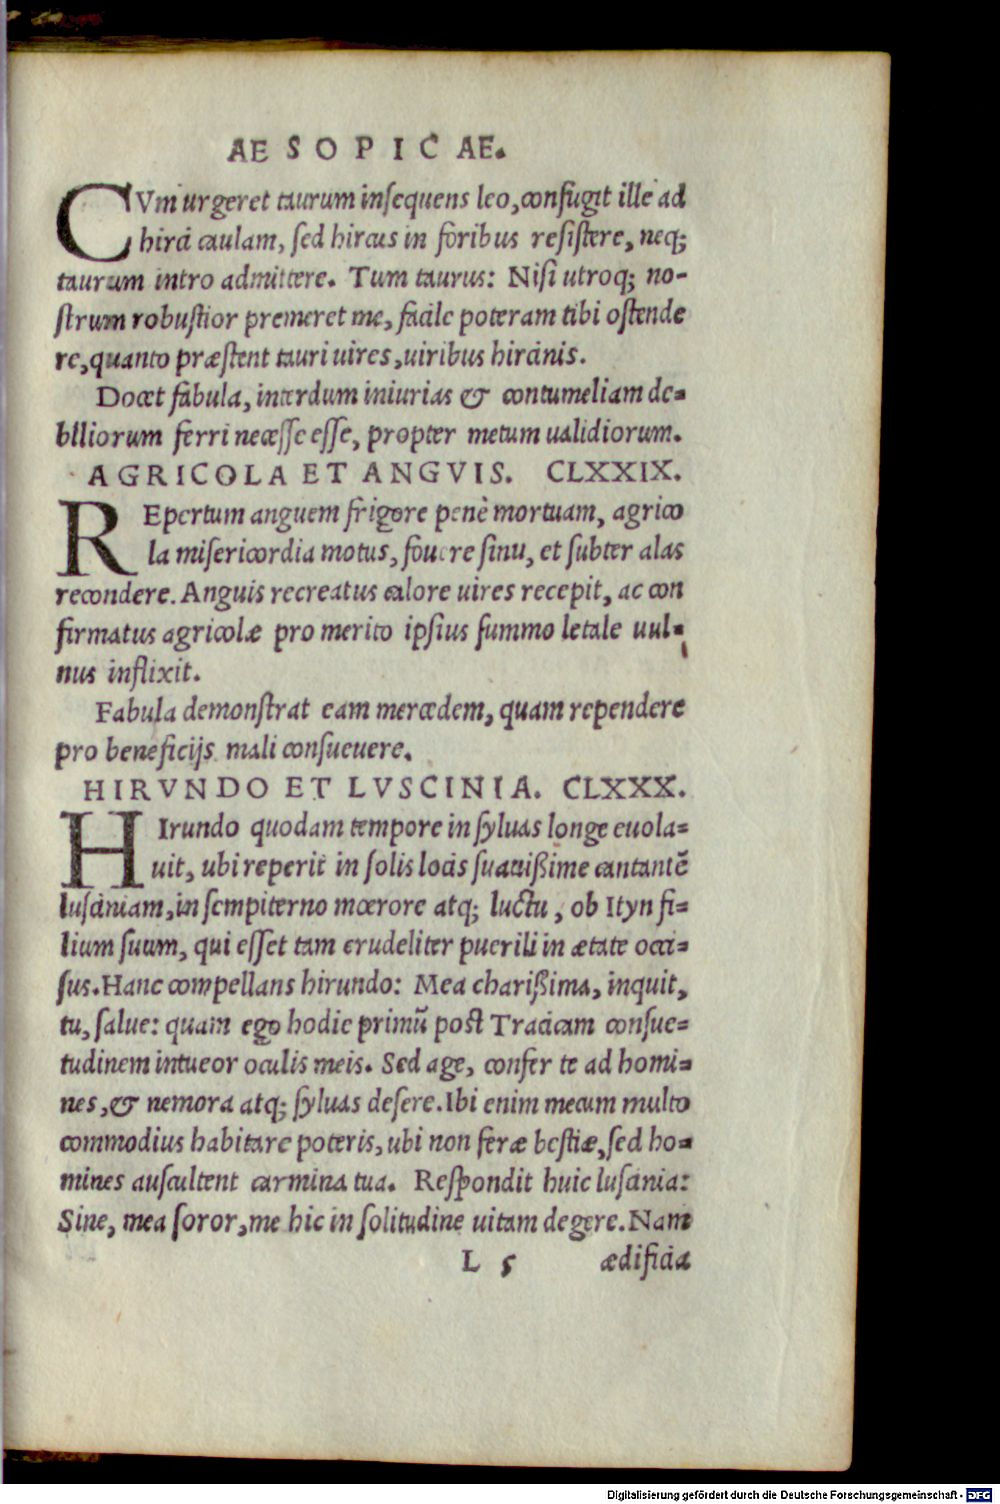 AESOPICAE.
CVm urgeret taurum insequens leo, confugit ille ad
hirci caulam, sed hircus in foribus resistere, neq;
taurum intro admittere. Tum taurus: Nisi utroq; no-
strum robustior premeret me, facile poteram tibi ostende
re, quanto præstent tauri uires, uiribus hircinis.
Docet fabula, interdum iniurias & contumeliam de-
biliorum ferri necesse esse, propter metum ualidiorum.
AGRICOLA ET ANGVIS. CLXXIX.
REpertum anguem frigore penè mortuam, agrico
la misericordia motus, fouere sinu, et subter alas
recondere. Anguis recreatus calore uires recepit, ac con
firmatus agricolæ pro merito ipsius summo letale uul-
nus inflixit.
Fabula demonstrat eam mercedem, quam rependere
pro beneficijs mali consueuere.
HIRVNDO ET LVSCINIA. CLXXX.
HIrundo quodam tempore in syluas longe euola-
uit, ubi reperit in solis locis suauißime cantantē
lusciniam, in sempiterno mœrore atq; luctu, ob Ityn fi-
lium suum, qui esset tam crudeliter puerili in ætate occi-
sus. Hanc compellans hirundo: Mea charißima, inquit,
tu, salue: quam ego hodie primū post Tracicam consue-
tudinem intueor oculis meis. Sed age, confer te ad homi-
nes, & nemora atq; syluas desere. Ibi enim mecum multo
commodius habitare poteris, ubi non feræ bestiæ, sed ho-
mines auscultent carmina tua. Respondit huic luscinia:
Sine, mea soror, me hic in solitudine uitam degere. Nam
L 5 ædificia
Digitalisierung gefördert durch die Deutsche Forschungsgemeinschaft - DFG